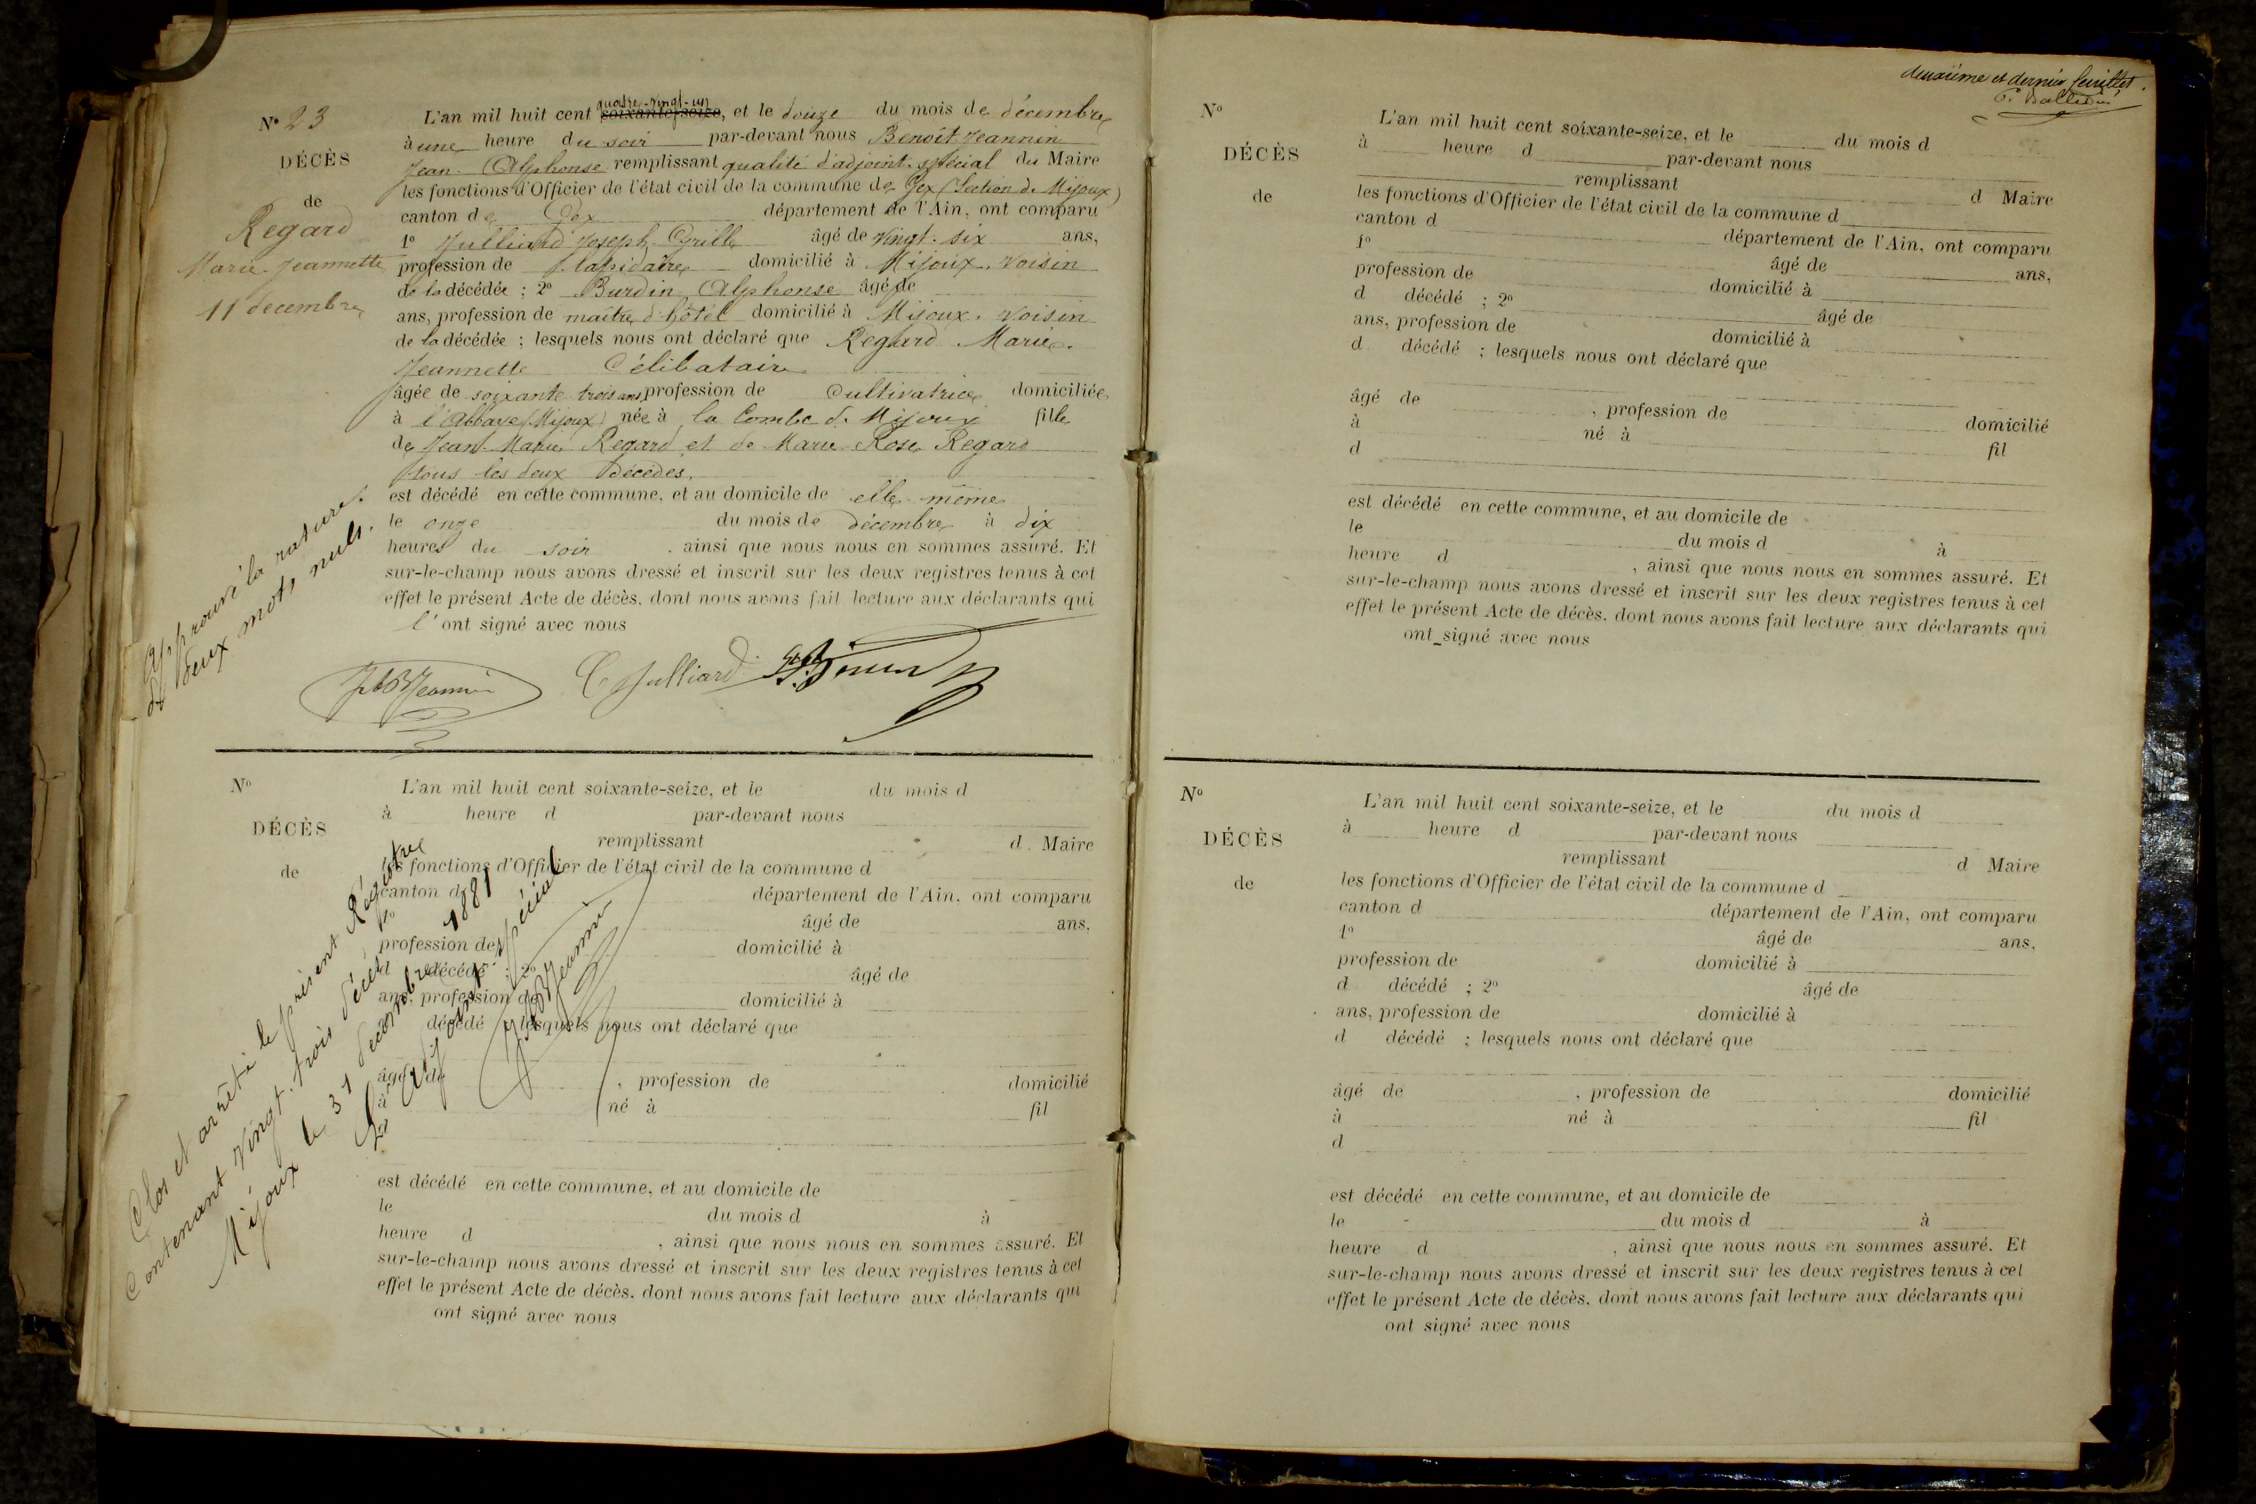 N° 23
DÉCÈS
de
Regard
Marie-Jeannette
11 décembre
quatre-vingt-un
L'an mil huit cent soixante-seize, et le douze du mois de décembre
à une heure du soir par-devant nous Benoît Jeannin
Jean-Alphonse remplissant qualité d'adjoint spécial du Maire
les fonctions d'Officier de l'état civil de la commune de Gex (Section de Mijoux)
canton de Gex département de l'Ain, ont comparu
1° Julliard Joseph Cyrille âgé de vingt-six ans,
profession de lapidaire domicilié à Mijoux, voisin
de la décédée ; 2° Burdin Alphonse âgé de
ans, profession de maître d'hôtel domicilié à Mijoux, voisin
de la décédée ; lesquels nous ont déclaré que Regard Marie-
Jeannette Célibataire
âgée de soixante trois ans profession de Cultivatrice domiciliée
à l'Abbaye (Mijoux) née à la Combe de Mijoux fille
de Jean-Marie Regard et de Marie Rose Regard
tous les deux Décédés.
est décédé en cette commune, et au domicile de elle-même
le onze du mois de décembre à dix
heures du soir , ainsi que nous nous en sommes assuré. Et
sur-le-champ nous avons dressé et inscrit sur les deux registres tenus à cet
effet le présent Acte de décès, dont nous avons fait lecture aux déclarants qui
l'ont signé avec nous
Approuvé la rature
de deux mots nuls.
C Julliard
N°
DÉCÈS
de
L'an mil huit cent soixante-seize, et le du mois d
à heure d par-devant nous
remplissant d Maire
les fonctions d'Officier de l'état civil de la commune d
canton d département de l'Ain, ont comparu
1° âgé de ans,
profession de domicilié à
d décédé ; 2° âgé de
ans, profession de domicilié à
d décédé ; lesquels nous ont déclaré que
âgé de , profession de domicilié
à né à fil
d
est décédé en cette commune, et au domicile de
le du mois d à
heure d , ainsi que nous nous en sommes assuré. Et
sur-le-champ nous avons dressé et inscrit sur les deux registres tenus à cet
effet le présent Acte de décès, dont nous avons fait lecture aux déclarants qui
ont signé avec nous
Clos et arrêté le présent Régistre
Contenant vingt-trois décès
Mijoux le 31 décembre 1881
L'Adjoint spécial
deuxième et dernier feuillet.
N°
DÉCÈS
de
L'an mil huit cent soixante-seize, et le du mois d
à heure d par-devant nous
remplissant d Maire
les fonctions d'Officier de l'état civil de la commune d
canton d département de l'Ain, ont comparu
1° âgé de ans,
profession de domicilié à
d décédé ; 2° âgé de
ans, profession de domicilié à
d décédé ; lesquels nous ont déclaré que
âgé de , profession de domicilié
à né à fil
d
est décédé en cette commune, et au domicile de
le du mois d à
heure d , ainsi que nous nous en sommes assuré. Et
sur-le-champ nous avons dressé et inscrit sur les deux registres tenus à cet
effet le présent Acte de décès, dont nous avons fait lecture aux déclarants qui
ont signé avec nous
N°
DÉCÈS
de
L'an mil huit cent soixante-seize, et le du mois d
à heure d par-devant nous
remplissant d Maire
les fonctions d'Officier de l'état civil de la commune d
canton d département de l'Ain, ont comparu
1° âgé de ans,
profession de domicilié à
d décédé ; 2° âgé de
ans, profession de domicilié à
d décédé ; lesquels nous ont déclaré que
âgé de , profession de domicilié
à né à fil
d
est décédé en cette commune, et au domicile de
le du mois d à
heure d , ainsi que nous nous en sommes assuré. Et
sur-le-champ nous avons dressé et inscrit sur les deux registres tenus à cet
effet le présent Acte de décès, dont nous avons fait lecture aux déclarants qui
ont signé avec nous